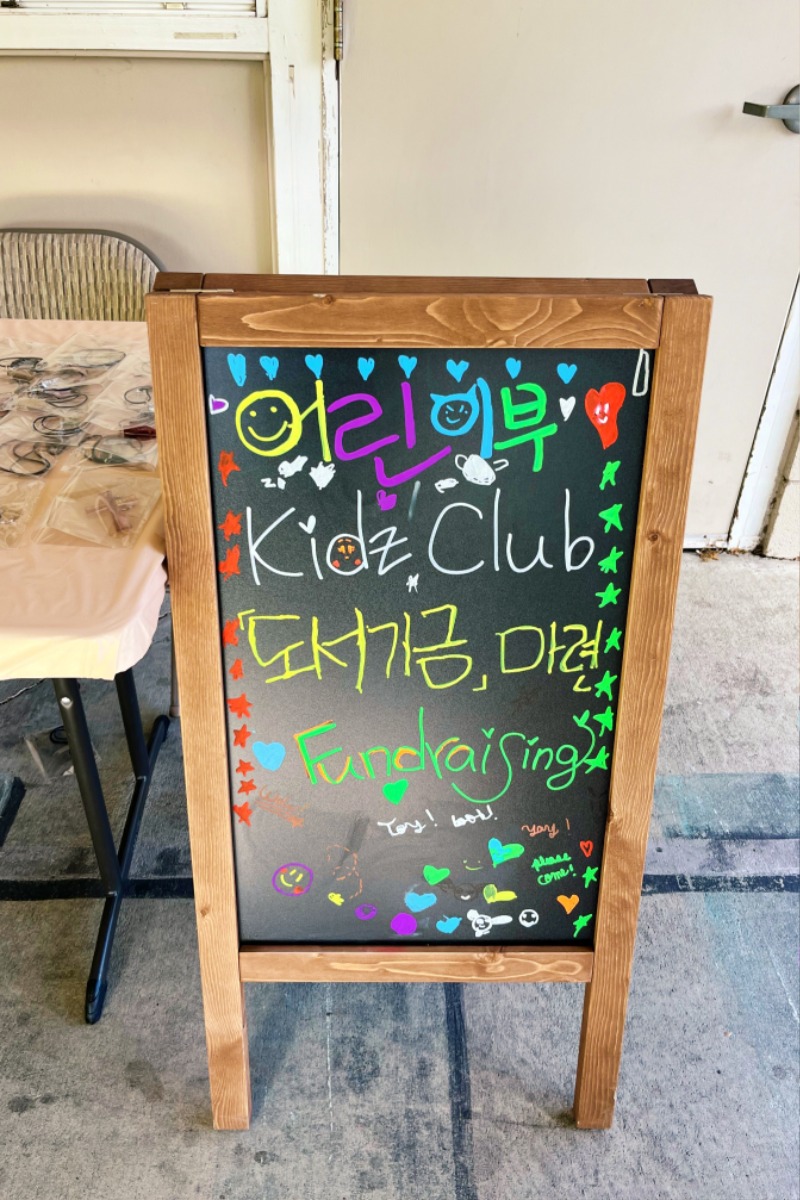 어린이부
Kidz Club
「도서기금」 마련
Fundraising
Yay! look!
yay!
please
come!